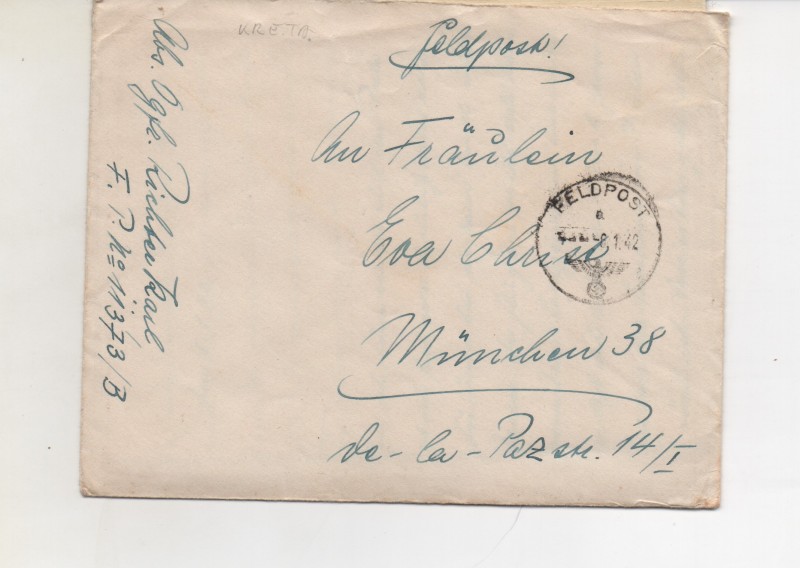 KRETA.
Feldpost!
An Fräulein
Eva Christ
München 38
de-la-Pazstr. 14/I
FELDPOST
a
8.1.42
Abs. Ogfr. Richter Karl
F. P. No 11373/B